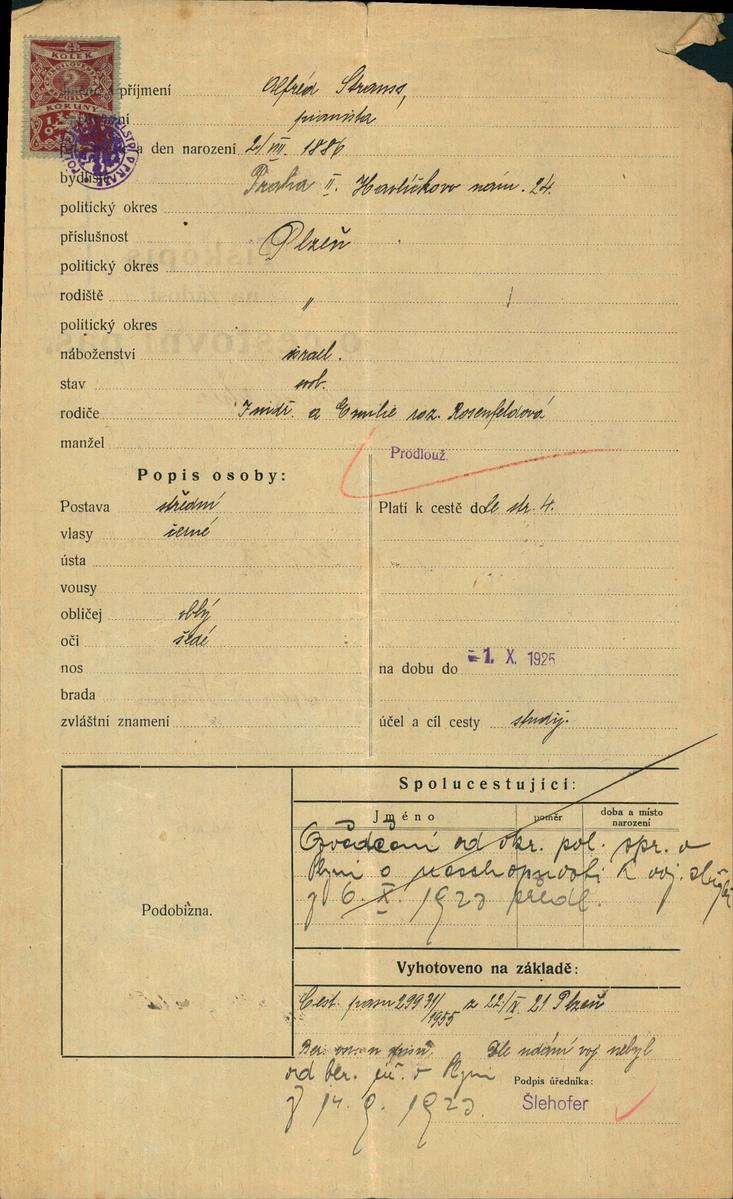 KOLEK
2
KORUNY
příjmení Alfréd Strauss,
pianista
a den narození 2/VIII. 1886
bydliště Praha II. Havlíčkovo nám. 24
politický okres
příslušnost Plzeň
politický okres
rodiště "
politický okres
náboženství israel.
stav svob.
rodiče Jindř. a Emilie roz. Rosenfeldová
manžel
Prodlouž.
Popis osoby:
Postava střední
vlasy černé
ústa
vousy
obličej oblý
oči šedé
nos
brada
zvláštní znamení
Platí k cestě do le str. 4.
na dobu do -1. X. 1925
účel a cíl cesty studij.
Podobizna.
Spolucestující:
Jméno poměr doba a místo narození
Osvědčení od okr. pol. spr. v
Plzni o neschopnosti k voj. službě
z 6. X. 1923 předl.
Vyhotoveno na základě:
Cest. pasu 29931/1955 z 22/IX. 21 Plzeň
Dle udání voj nebyl
od ber. úř. v Plzni
z 14. 9. 1923.
Podpis úředníka:
Šlehofer